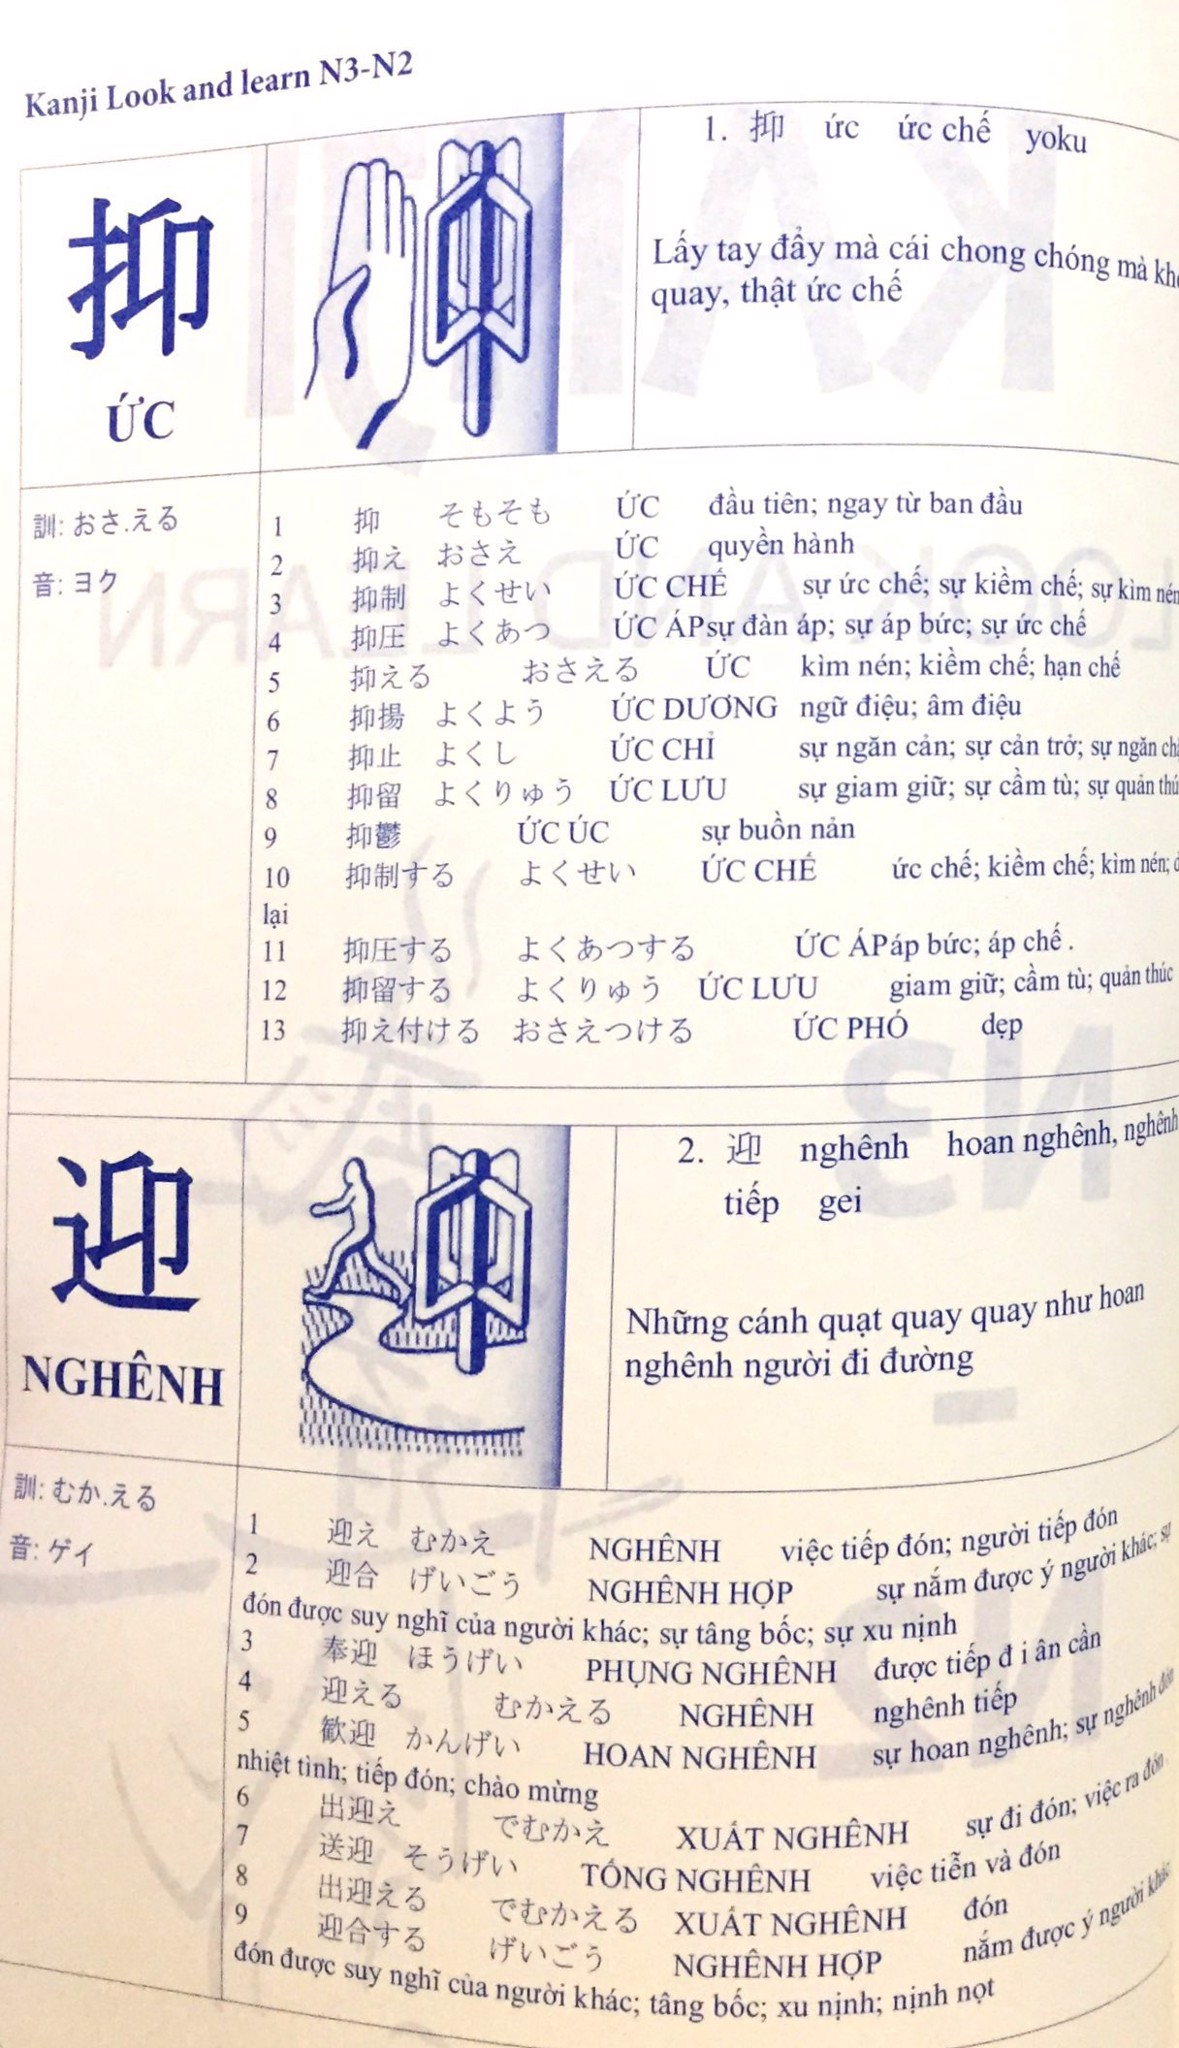 Kanji Look and learn N3-N2
抑
ỨC
1. 抑 ức ức chế yoku
Lấy tay đẩy mà cái chong chóng mà
quay, thật ức chế
訓: おさ.える
音: ヨク
1 抑 そもそも ỨC đầu tiên; ngay từ ban đầu
2 抑え おさえ ỨC quyền hành
3 抑制 よくせい ỨC CHẾ sự ức chế; sự kiềm chế; sự kìm nén
4 抑圧 よくあつ ỨC ÁPsự đàn áp; sự áp bức; sự ức chế
5 抑える おさえる ỨC kìm nén; kiềm chế; hạn chế
6 抑揚 よくよう ỨC DƯƠNG ngữ điệu; âm điệu
7 抑止 よくし ỨC CHỈ sự ngăn cản; sự cản trở; sự ngăn
8 抑留 よくりゅう ỨC LƯU sự giam giữ; sự cầm tù; sự quản
9 抑鬱 ỨC ÚC sự buồn nản
10 抑制する よくせい ỨC CHẾ ức chế; kiềm chế; kìm nén;
lại
11 抑圧する よくあつする ỨC ÁPáp bức; áp chế .
12 抑留する よくりゅう ỨC LƯU giam giữ; cầm tù; quản thúc
13 抑え付ける おさえつける ỨC PHÓ dẹp
迎
NGHÊNH
2. 迎 nghênh hoan nghênh, nghênh
tiếp gei
Những cánh quạt quay quay như hoan
nghênh người đi đường
訓: むか.える
音: ゲイ
1 迎え むかえ NGHÊNH việc tiếp đón; người tiếp đón
2 迎合 げいごう NGHÊNH HỢP sự nắm được ý người khác; sự
đón được suy nghĩ của người khác; sự tâng bốc; sự xu nịnh
3 奉迎 ほうげい PHỤNG NGHÊNH được tiếp đ i ân cần
4 迎える むかえる NGHÊNH nghênh tiếp
5 歓迎 かんげい HOAN NGHÊNH sự hoan nghênh; sự nghênh đón
nhiệt tình; tiếp đón; chào mừng
6 出迎え でむかえ XUẤT NGHÊNH sự đi đón; việc ra đón
7 送迎 そうげい TỐNG NGHÊNH việc tiễn và đón
8 出迎える でむかえる XUẤT NGHÊNH đón
9 迎合する げいごう NGHÊNH HỢP nắm được ý người khác
đón được suy nghĩ của người khác; tâng bốc; xu nịnh; nịnh nọt